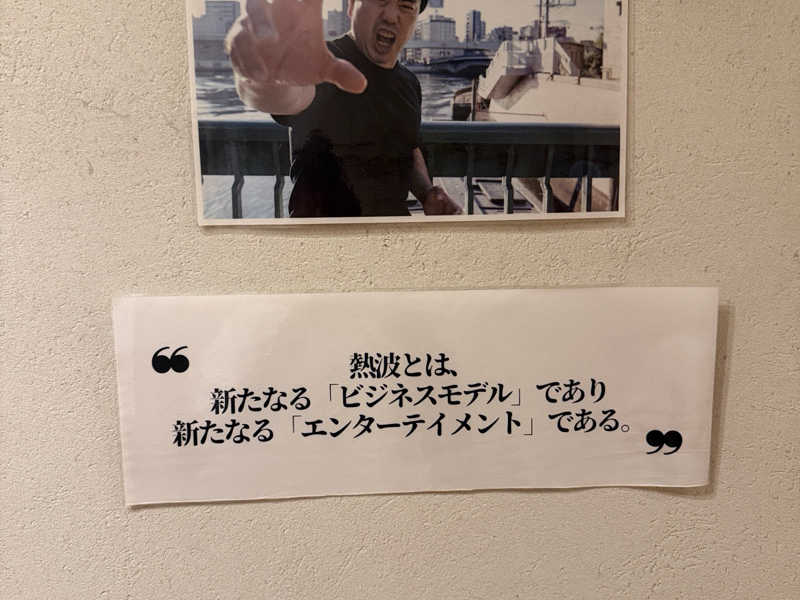 ❝
熱波とは、
新たなる「ビジネスモデル」であり
新たなる「エンターテイメント」である。
❞